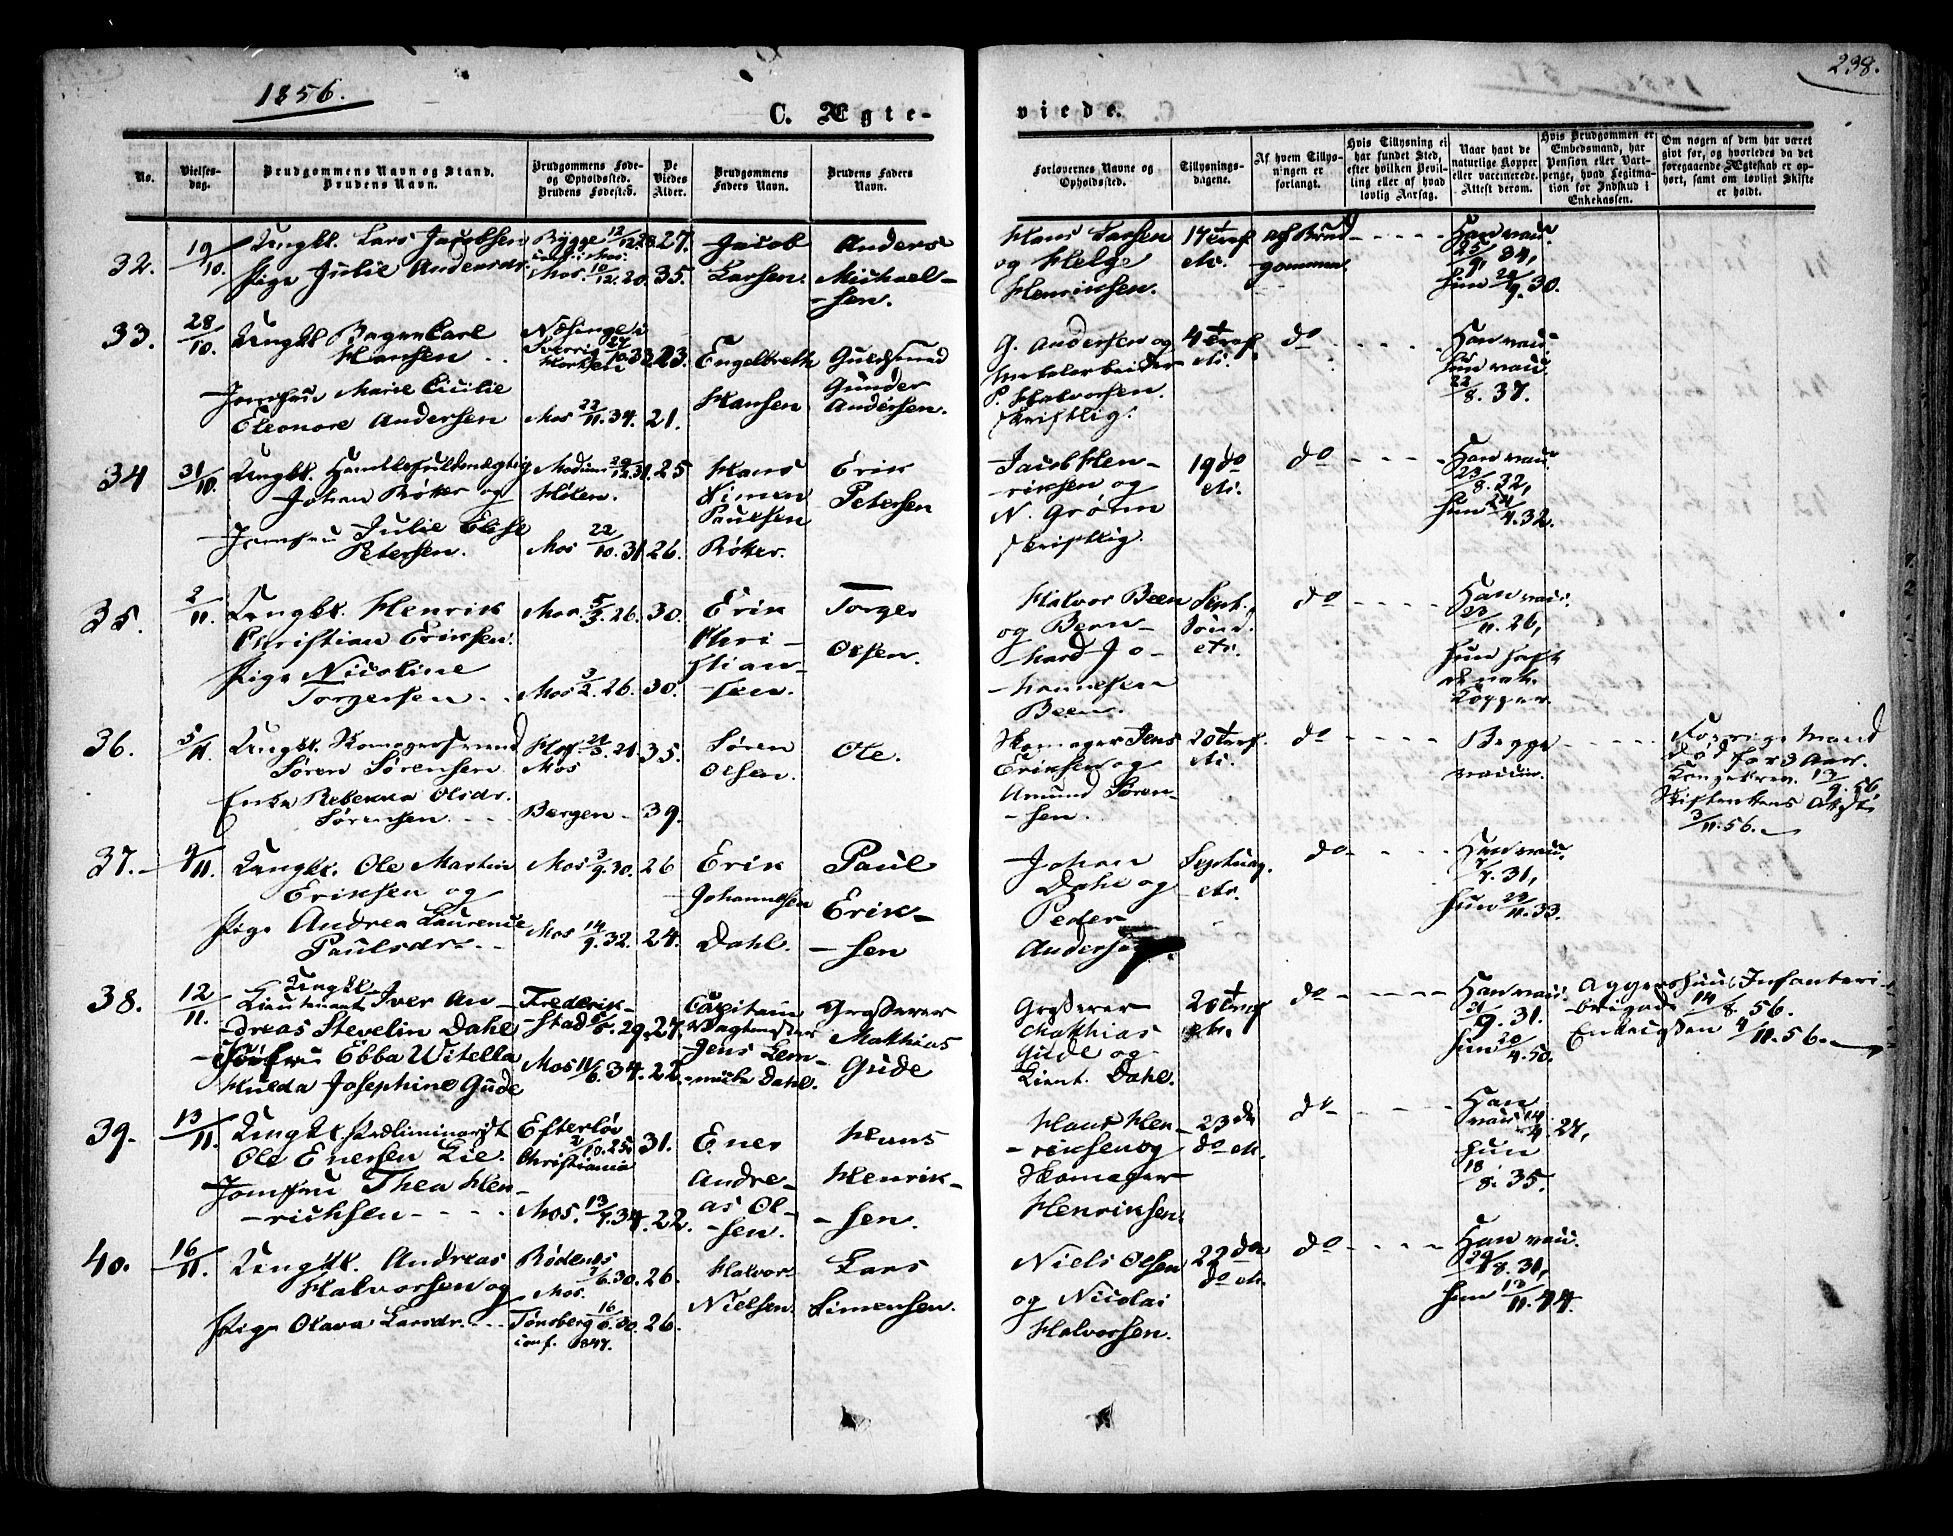 1856.
238.
C. Ægte-
viede.
No.
Vielses-
dag.
Brudgommens Navn og Stand.
Brudens Navn.
Brudgommens Føde-
og Opholdssted.
Brudens Fødested.
De
Viedes
Alder.
Brudgommens
Faders Navn.
Brudens Faders
Navn.
Forlovernes Navne og
Opholdssted.
Tillysnings-
dagene.
Af hvem Tillys-
ningen er
forlangt.
Hvis Tillysning ei
har fundet Sted,
efter hvilken Bevil-
ling eller af hvad
lovlig Aarsag.
Naar havt de
naturlige Kopper
eller vaccinerede.
Attest derom.
Hvis Brudgommen er
Embedsmand, har
Pension eller Vart-
penge, hvad Legitima-
tion for Indskud i
Enkekassen.
Om nogen af dem har været
gift før, og hvorledes da det
foregaaende Ægteskab er op-
hørt, samt om lovligt Skifte
er holdt.
32.
19/10.
Ungkl. Lars Jacobsen
Pige Julie Andersdr.
Rygge 12/12.28
Mos. 10/12.20
27.
35.
Jacob
Larsen.
Anders
Michael-
sen.
Hans Larsen
og Helge
Henriksen.
af Brud
gommen
Han vacc.
25/9. 34,
hun 29/9. 30.
33.
28/10.
Ungkl.
Hansen
Jomfru Marie Cicilie
Eleonore Andersen
Mos 22/11. 34.
23.
21.
Engelbreth
Hansen
Guldsmed
Gunder
Andersen.
G. Andersen og
P. Halvorsen.
skriftlig.
do
Han vacc.
hun vacc.
22/8. 37.
34
31/10.
Ungkl. Handelsfuldmægtig
Johan Røker og
Jomfru Julie Elise
Petersen.
Modum 20/12.31
Hølen.
Mos 22/10. 31
25
26.
Hans
Simen
Paulsen
Røker.
Erik
Petersen
Jacob Hen-
riksen og
N. Grønn
skriftlig.
19 do
etc.
do
Han vacc.
23/8. 32,
hun 24/4. 32.
35.
2/11.
Ungkl. Henrik
Christian Eriksen.
Pige Nicoline
Torgersen.
Mos 5/3. 26.
Mos 3/2. 26.
30.
30.
Erik
Chri-
stian-
sen.
Torger
Olsen.
Halvor Been
og Bern-
hard Jo-
hannesen
Been.
Sept.
Sønd.
etc.
do
Han vacc.
23/11. 26,
hun haft
de nat.
Kopper.
36.
5/11.
Ungkl. Skomagersvend
Søren Sørensen
Enke Rebekka Olsdr.
Sørensen.
Mos
Bergen
35.
39.
Søren
Olsen.
Ole.
Skomager Jens
Eriksen og
Amund Søren-
sen.
do
Begge
vaccin.
Forrige Mand
død for 3 Aar.
13/9. 56
3/11. 56.
37.
9/11.
Ungkl. Ole Martin
Eriksen og
Pige Andrea Laurence
Paulsdr.
Mos 3/9. 30.
Mos 14/9. 32.
26
24.
Erik
Johannesen
Dahl.
Paul
Erik-
sen
Johan
Dahl og
Peder
Andersen.
Septuag.
etc.
do
Han vacc.
7/7. 31,
hun 23/11. 33.
38.
12/11.
Ungkl.
Lieutenant Iver An-
dreas Stevelin Dahl
Jomfru Ebba Witella
Hulda Josephine Gude
Frederik-
stad
29.
Mos 11/6. 34.
27.
22.
Capitain
Vagtmester
Jens Lem-
mich Dahl.
Grosserer
Mathias
Gude
Grosserer
Matthias
Gude og
Lieut. Dahl.
do
Han vacc.
31.
hun 20/4. 50.
Aggershuus Infanteri-
brigade 14/8. 56.
Enkekassen 4/11. 56.
39.
13/11.
Ungkl. Præliminarist
Ole Enersen Lie.
Jomfru Thea Hen-
richsen
Efterløv
2/10. 25
Christiania
Mos. 13/7. 34.
31.
22.
Ener
Andre-
as Ol-
sen.
Hans
Henrik-
sen.
Hans Hen-
riksen og
Skomager
Henriksen.
23 do
do etc.
do
Han
vacc 14/4. 27,
hun
18/8. 35.
40.
16/11.
Ungkl. Andreas
Halvorsen og
Pige Olava Larsdr.
Rødenes
7/6. 30.
Mos.
Tønsberg 16/6. 30.
conf. 1847.
26.
26.
Halvor
Nielsen.
Lars
Simensen.
Niels Olsen
og Nicolai
Halvorsen.
22 do
do etc.
do
Han vacc.
24/8. 31,
hun 13/11. 44.